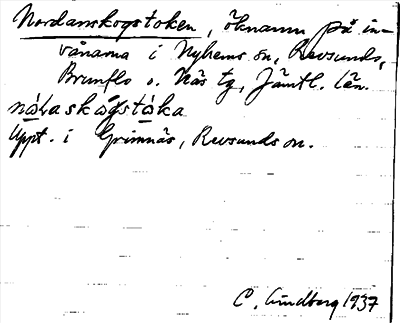 Nordanskogstoken, öknamn på in-
vånarna i Nyhems sn, Revsunds,
Brunflo o. Näs tg, Jämtl. län.
nɷlaskɷgstɷka
Uppt. i Grimnäs, Revsunds sn.
C. Lindberg 1937